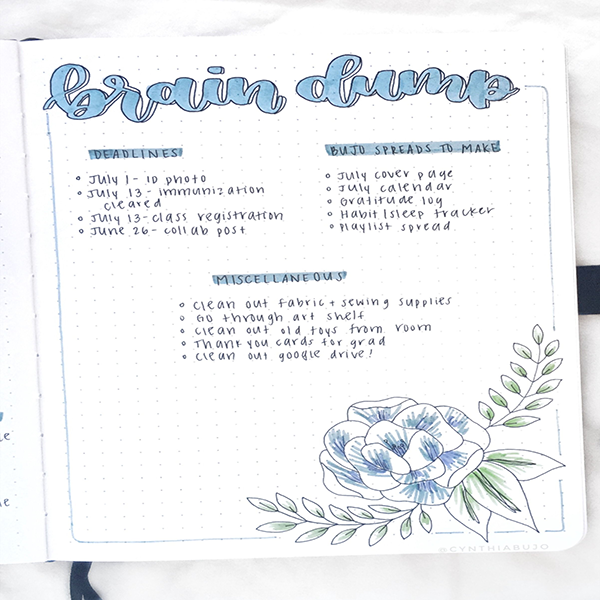 brain dump
DEADLINES
July 1- ID photo
July 13- immunization
cleared
July 13-class registration
June 26- collab post
BUJO SPREADS TO MAKE
July cover page
July calendar
Gratitude log
Habit/sleep tracker
Playlist spread
MISCELLANEOUS
Clean out fabric + sewing supplies
Go through art shelf
Clean out old toys from room
Thank you cards for grad
Clean out google drive!
@CYNTHIABUJO